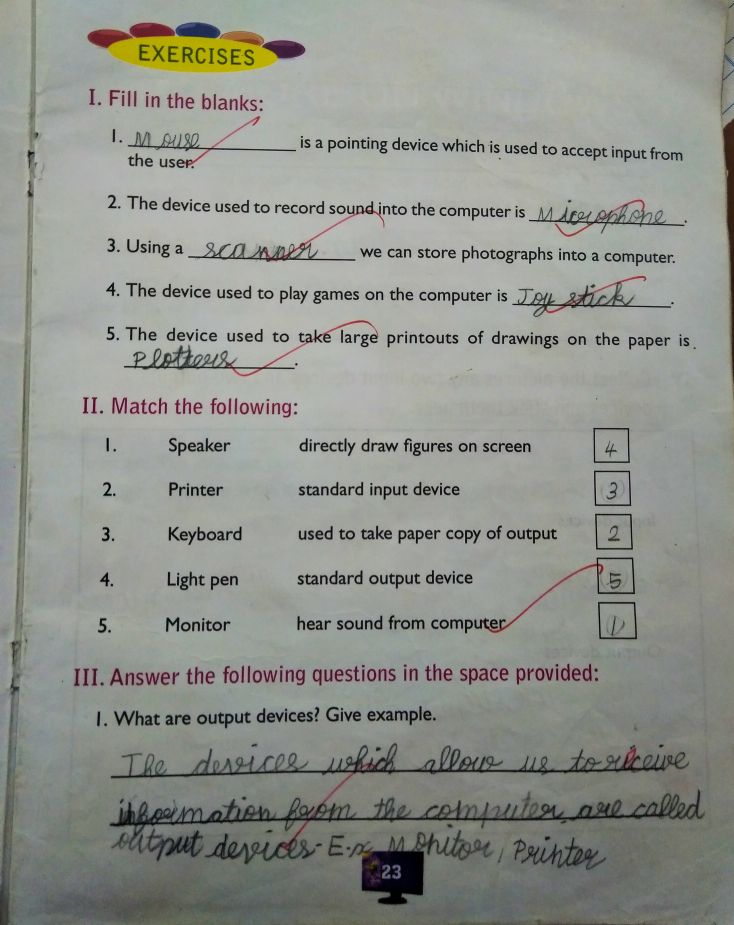 EXERCISES
I. Fill in the blanks:
1. Mouse is a pointing device which is used to accept input from
the user.
2. The device used to record sound into the computer is Microphone.
3. Using a scanner we can store photographs into a computer.
4. The device used to play games on the computer is Joy stick.
5. The device used to take large printouts of drawings on the paper is.
Plotters.
II. Match the following:
1. Speaker directly draw figures on screen 4
2. Printer standard input device 3
3. Keyboard used to take paper copy of output 2
4. Light pen standard output device 5
5. Monitor hear sound from computer 1
III. Answer the following questions in the space provided:
1. What are output devices? Give example.
The devices which allow us to receive
information from the computer, are called
output devices. E.x Monitor, Printer
23